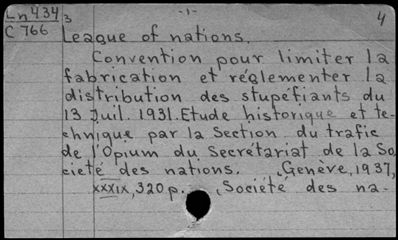 Ln434 3 -1- 4
C766
League of nations.
Convention pour limiter la
fabrication et réglementer la
distribution des stupéfiants du
13 Juil. 1931. Etude historique et te-
chnique par la Section du trafic
de l'Opium du Secrétariat de la So
cieté des nations. Genève, 1937,
xxxix, 320 p. Société des na-